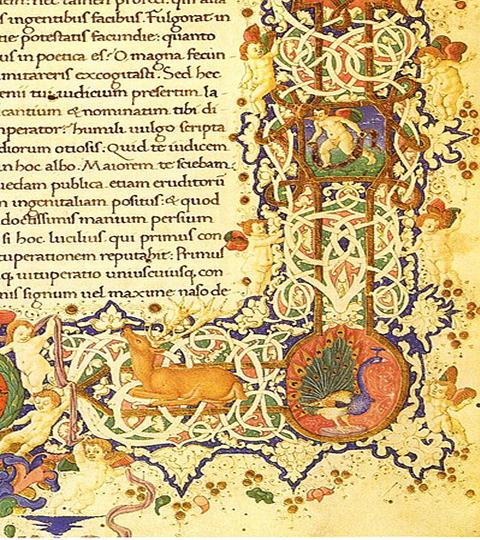 s ingentibus facibus. Fulgorat in
tie potestatis facundie: quanto
us in poetica es? O magna fecun
mitareris excogitasti. Sed hec
enii tui iudicium presertim la
cantium & nominatim tibi di-
mperator? humili uulgo scripta
diorum otiosis. Quid te iudicem
in hoc albo. Maiorem te sciebam.
uedam publica etiam eruditorū
n ingenitaliam positus: & quod
doctissimis manium persium
si hoc lucilius. qui primus con
tuperationem reputabit: Primus
q. uituperatio uniuscuiusq. con
nis signum uel maxime naso de-